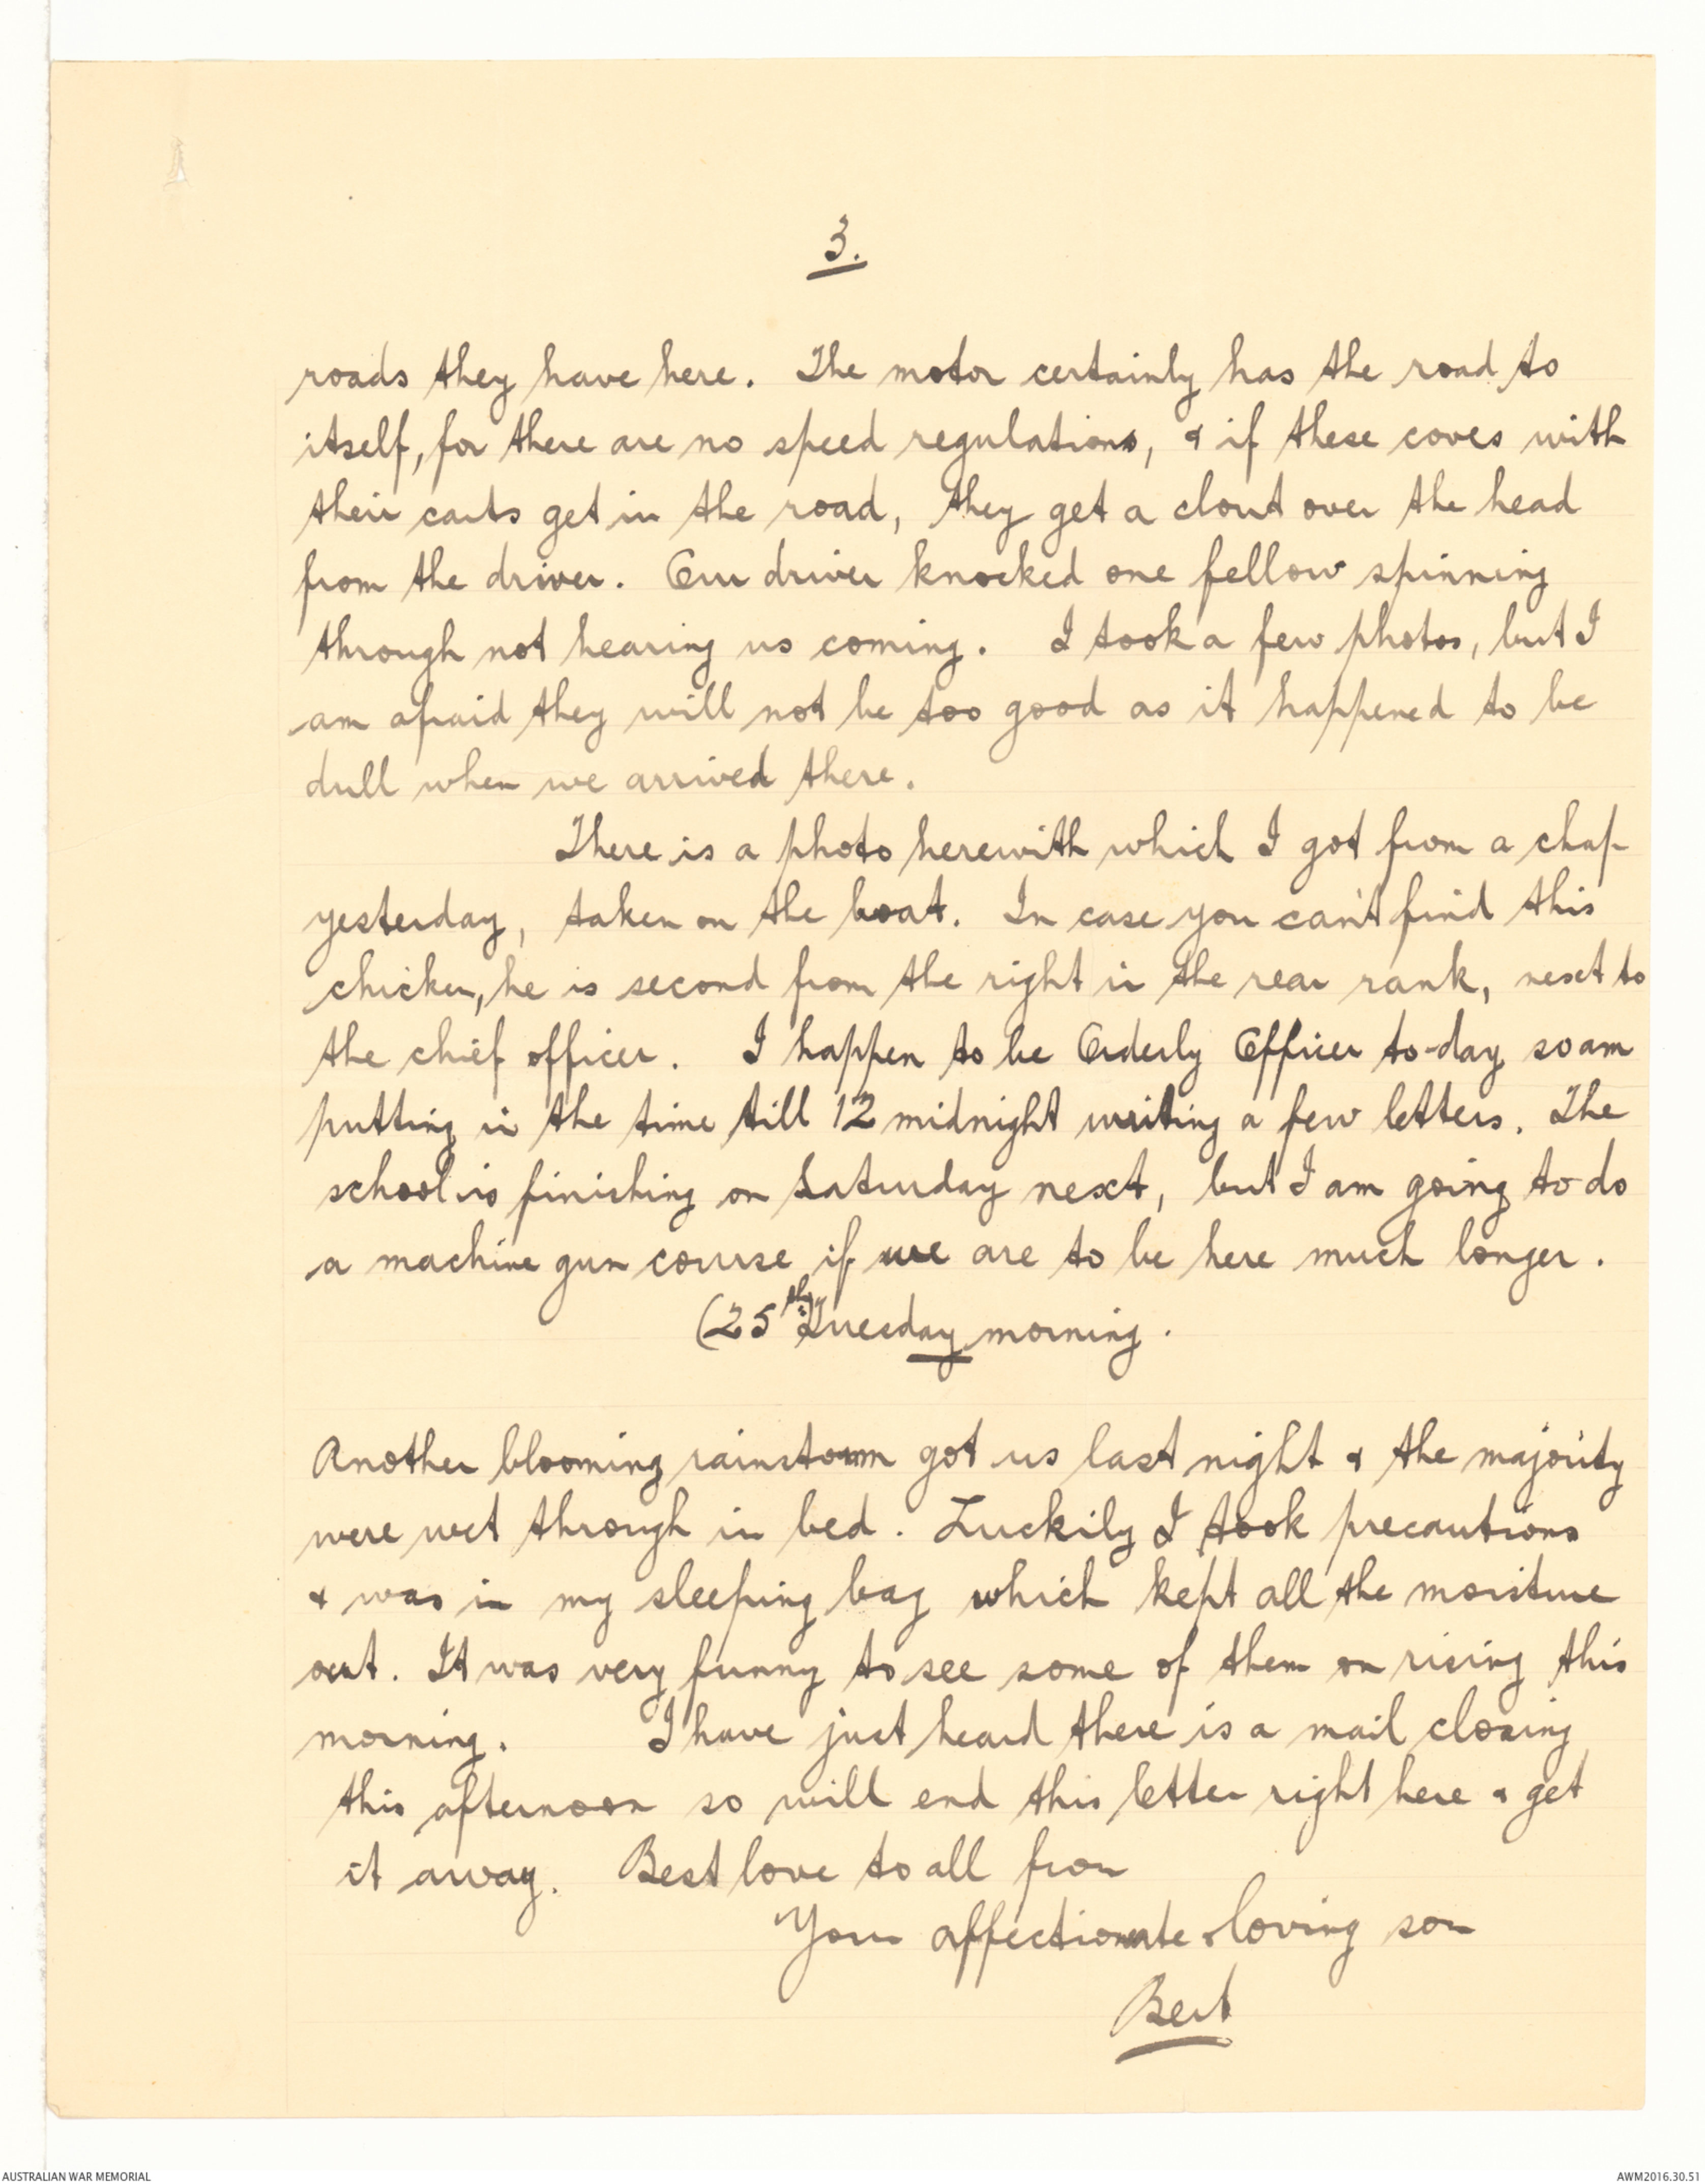 3.
roads they have here. The motor certainly has the road to
itself, for there are no speed regulations, & if these coves with
their carts get in the road, they get a clout over the head
from the driver. Our driver knocked one fellow spinning
through not hearing us coming. I took a few photos, but I
am afraid they will not be too good as it happened to be
dull when we arrived there.
There is a photo herewith which I got from a chap
yesterday, taken on the boat. In case you can't find this
chicken, he is second from the right in the rear rank, next to
the chief officer. I happen to be Orderly Officer to-day so am
putting in the time till 12 midnight writing a few letters. The
school is finishing on Saturday next, but I am going to do
a machine gun course if we are to be here much longer.
(25th) Tuesday morning.
Another blooming rainstorm got us last night & the majority
were wet through in bed. Luckily I took precautions
& was in my sleeping bag which kept all the moisture
out. It was very funny to see some of them on rising this
morning. I have just heard there is a mail closing
this afternoon so will end this letter right here & get
it away. Best love to all from
Your affectionate & loving son
Bert
AUSTRALIAN WAR MEMORIAL
AWM2016.30.51